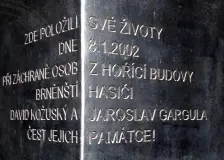 ZDE POLOŽILI SVÉ ŽIVOTY
DNE 8.1.2002
PŘI ZÁCHRANĚ OSOB Z HOŘÍCÍ BUDOVY
BRNĚNŠTÍ HASIČI
DAVID KOŽUSKÝ A JAROSLAV GARGULA
ČEST JEJICH PAMÁTCE!